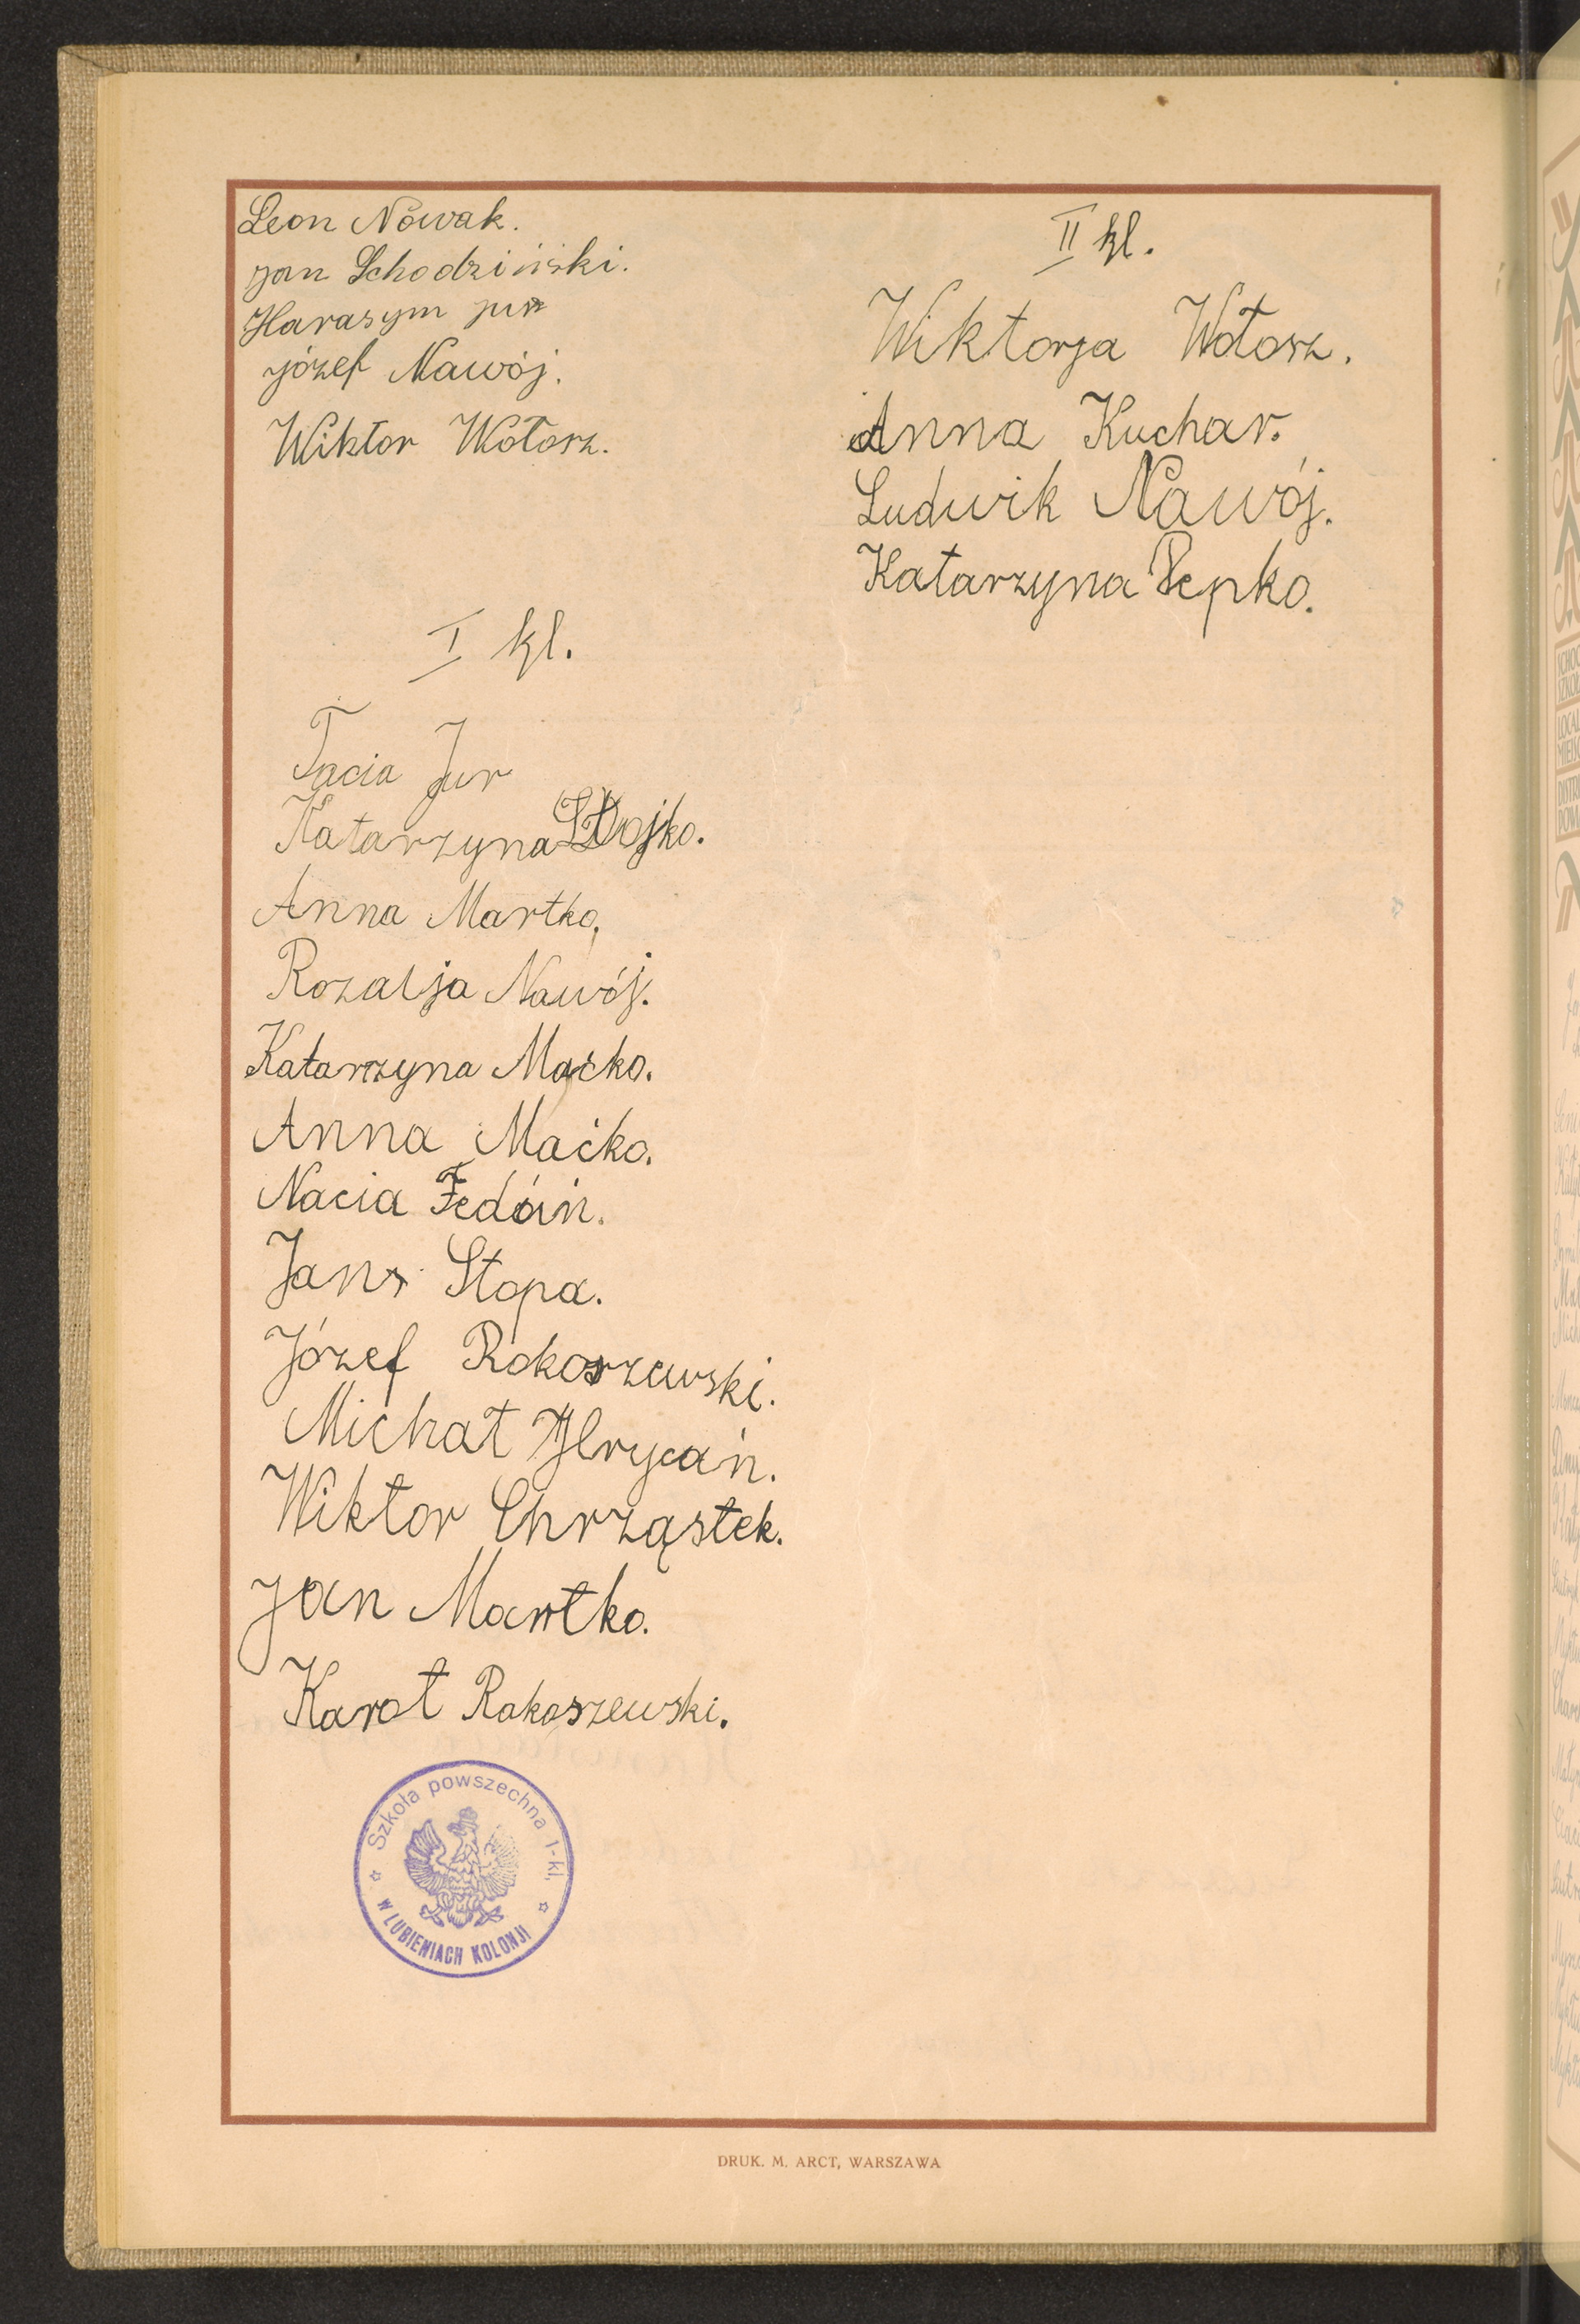 Leon Nowak.
Jan Schodziński.
Harasym Jur
Józef Nawój.
Wiktor Wołosz.
I kl.
Tacia Jur
Katarzyna Dojko.
Anna Martko,
Rozalja Nawój.
Katarzyna Maćko.
Anna Maćko.
Nacia Fedáń.
Jan Stopa.
Józef Rokoszewski.
Michał Hrycań.
Wiktor Chrząstek.
Jan Martko.
Karol Rokoszewski.
Szkoła powszechna 1-kl,
W LUBIENIACH KOLONJI
II kl.
Wiktorja Wołosz.
Anna Kuchar.
Ludwik Nawój.
Katarzyna Pepko.
DRUK. M. ARCT, WARSZAWA